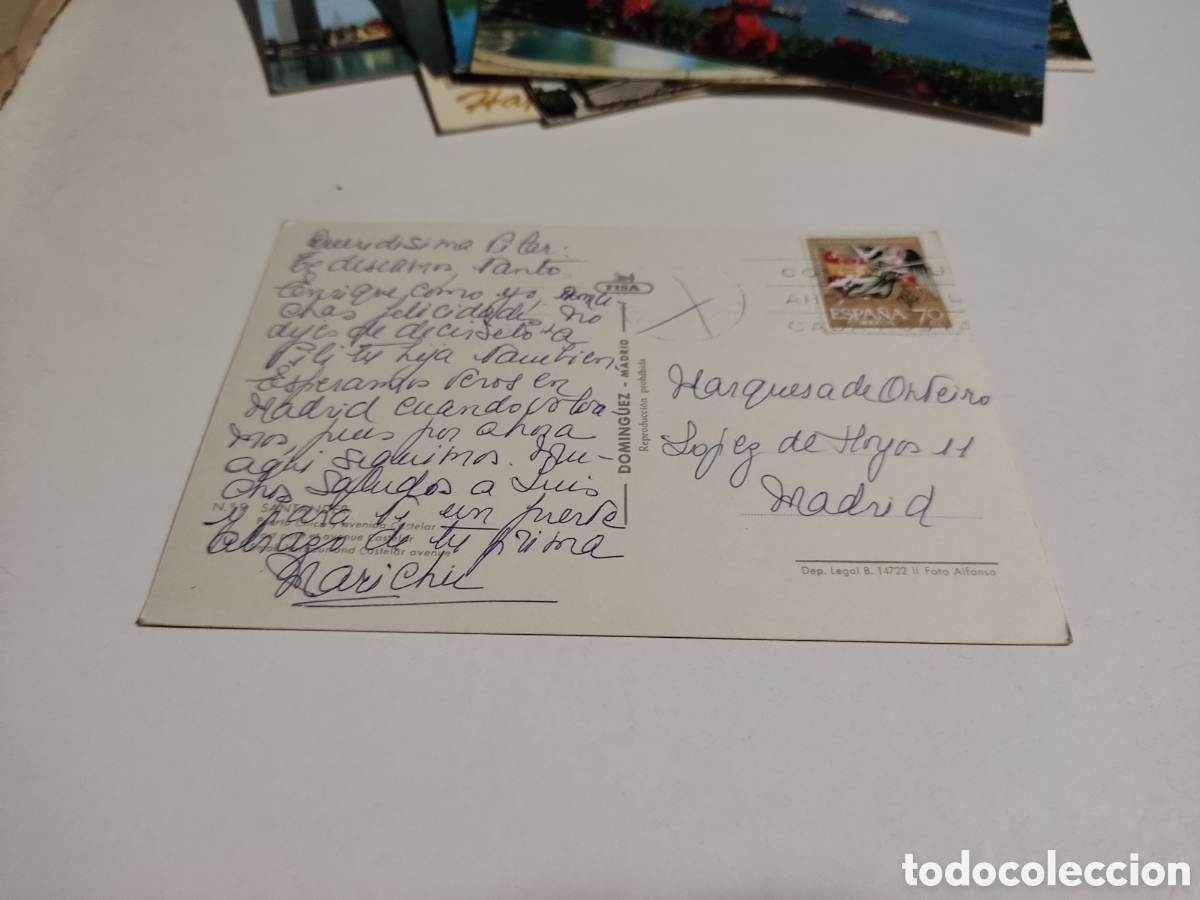 Queridisima Pilar:
te deseamos, tanto
Enrique como yo mu
chas felicidade no
dyes de decirselo a
Pili tu hija tambien.
Esperamos veros en
Madrid cuando volva-
mos, pues por ahora
aqui seguimos. Mu-
chos saludos a Luis
y para ti un fuerte
abrazo de tu prima
Marichu
N.59 SANTANDER
Puerto Chico y avenida Castelar
avenue Castelar
and Castelar avenue
FISA
DOMINGUEZ - MADRID
Reproducción prohibida
ESPAÑA 70
CORREOS
Marquesa de Onteiro
Lopez de Hoyos 11
Madrid
Dep. Legal B. 14722 II Foto Alfonso
todocoleccion